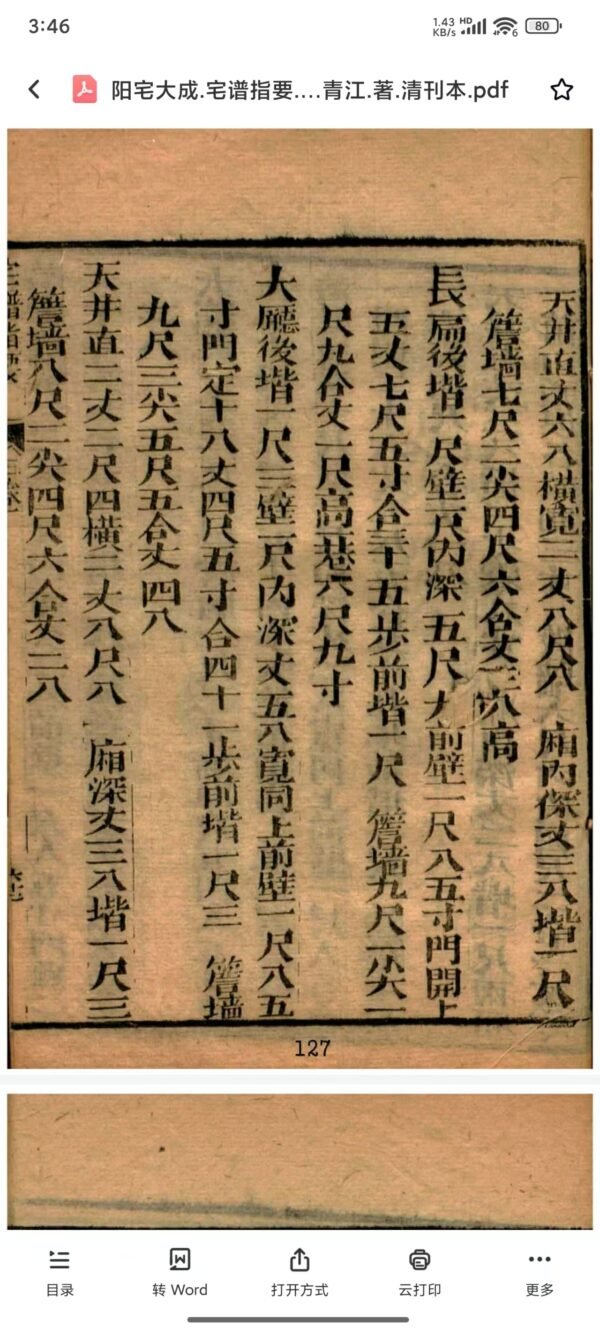 3:46
1.43 KB/s
HD
6
80
阳宅大成.宅谱指要....青江.著.清刊本.pdf
天井直丈六八橫寬二丈八尺八 廂內深丈三八堦一尺
簷墻七尺二尖四尺六合丈二八高
長扁後堦一尺壁一尺內深五尺大前壁一尺八五寸門開上
五丈七尺五寸合三十五步前堦一尺 簷墻九尺一尖一
尺九合丈一尺高一巷六尺九寸
大廳後堦一尺三壁一尺內深丈五八寬同上前壁一尺八五
寸門定十八丈四尺五寸合四十一步前堦一尺三 簷墻
九尺三尖五尺五合丈四八
天井直二丈二尺四橫二丈八尺八 廂深丈三八堦一尺三
簷墻八尺二尖四尺六合丈二八
127
目录
转 Word
打开方式
云打印
更多